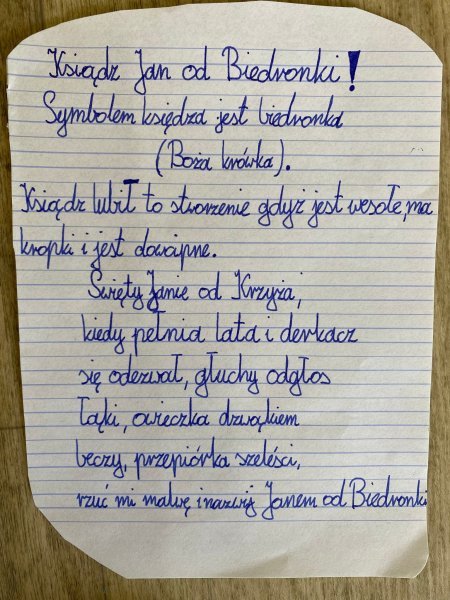 Ksiądz Jan od Biedronki!
Symbolem księdza jest biedronka
(Boża krówka).
Ksiądz lubił to stworzenie gdyż jest wesołe, ma
kropki i jest dowcipne.
Święty Janie od Krzyża,
kiedy pełnia lata i derkacz
się odezwał, głuchy odgłos
łąki, owieczka dzwonkiem
beczy, przepiórka szeleści,
rzuć mi malwę i nazwij Janem od Biedronki